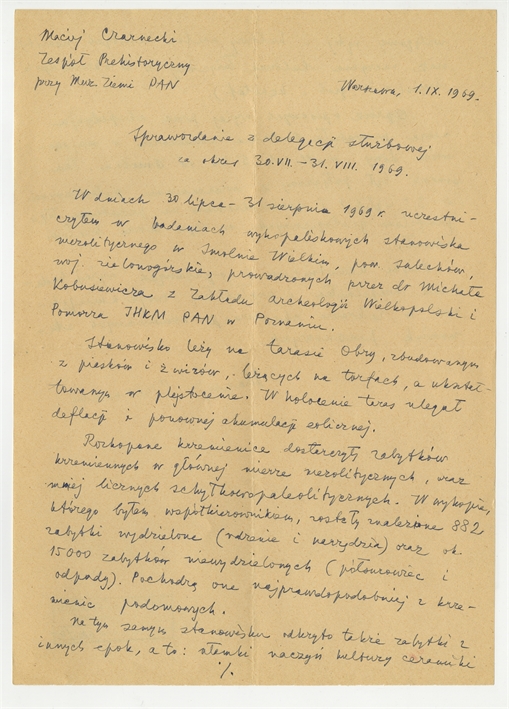 Maciej Czarnecki
Zespół Prehistoryczny
przy Muz. Ziemi PAN
Warszawa, 1.IX.1969.
Sprawozdanie z delegacji służbowej
za okres 30.VII.–31.VIII.1969.
W dniach 30 lipca – 31 sierpnia 1969 r. uczestni-
czyłem w badaniach wykopaliskowych stanowiska
mezolitycznego w Smolnie Wielkim, pow. Sulechów,
woj. zielonogórskie, prowadzonych przez dr Michała
Kobusiewicza z Zakładu Archeologii Wielkopolski i
Pomorza IHKM PAN w Poznaniu.
Stanowisko leży na tarasie Obry, zbudowanym
z piasków i żwirów, leżących na torfach, a ukształ-
towanym w plejstocenie. W holocenie taras ulegał
deflacji i ponownej akumulacji eolicznej.
Rozkopane krzemienice dostarczyły zabytków
krzemiennych w głównej mierze mezolitycznych, oraz
mniej licznych schyłkowopaleolitycznych. W wykopie,
którego byłem współkierownikiem, zostały znalezione 882
zabytki wydzielone (rdzenie i narzędzia) oraz ok.
15000 zabytków niewydzielonych (półsurowiec i
odpady). Pochodzą one najprawdopodobniej z krze-
mienic podomowych.
Na tym samym stanowisku odkryto także zabytki z
innych epok, a to: ułamki naczyń kultury ceramiki
./.